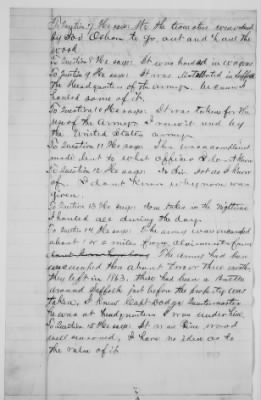 To Question 7 He says: the teamster
by to go out and haul the
wood.
To Question 8 He says: It was hauled in wagons
To Question 9 He says: It was in Suffolk
the Headquarters of the Army. he
hauled some of it.
To Question 10 He says: It was taken for the
use of the Army & I saw it used by
the United States army.
To Question 11 He says: There was a complaint
made but to what officer I dont know
To Question 12 He says: No Sir. not as I know
of. I dont know why none was
given.
To Question 13 He says: Some taken in the night time
I hauled all during the day.
To Question 14 He says: The army was encamped
about 1 or 2 miles from claimants farm
The army had been
encamped there about two or three months,
they left in 1863. there had been a battle
around Suffolk just before the property was
taken, I knew Capt Dodge Quartermaster
he was at headquarters I was under him.
To Question 15 He says: It was Pine wood
well seasoned, I have no idea as to
the value of it